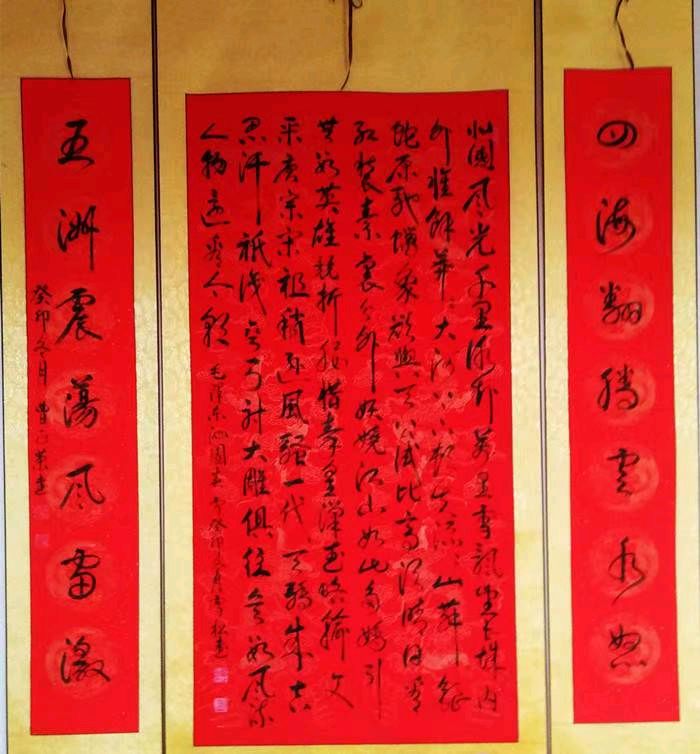 四海翻腾雲水怒
北國风光千里冰封萬里雪飘望长城内
外惟餘莽莽大河上下顿失滔滔山舞銀
蛇原驰蜡象欲與天公试比高须晴日看
红装素裹分外妖娆江山如此多娇引
無数英雄競折腰惜秦皇漢武略输文
采唐宗宋祖稍逊風騷一代天骄成吉
思汗只识弯弓射大雕俱往矣数风流
人物還看今朝 毛泽东沁園春雪癸卯冬月
五洲震荡风雷激
癸卯冬月